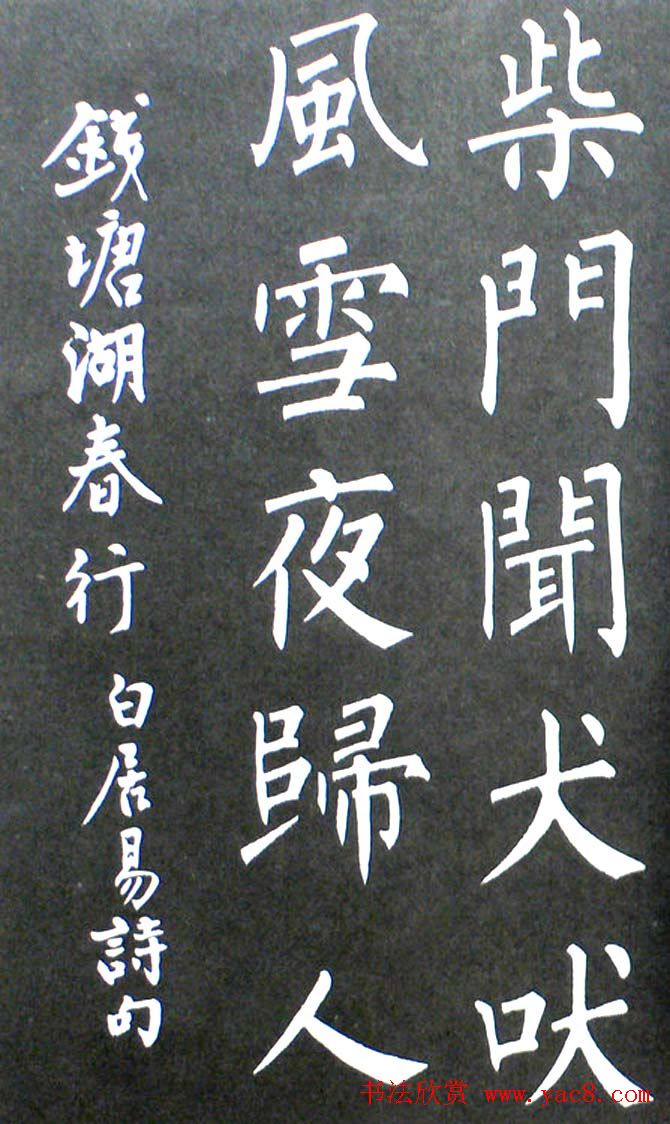 柴門聞犬吠
風雪夜歸人
錢塘湖春行 白居易詩句
书法欣赏 www.yac8.com